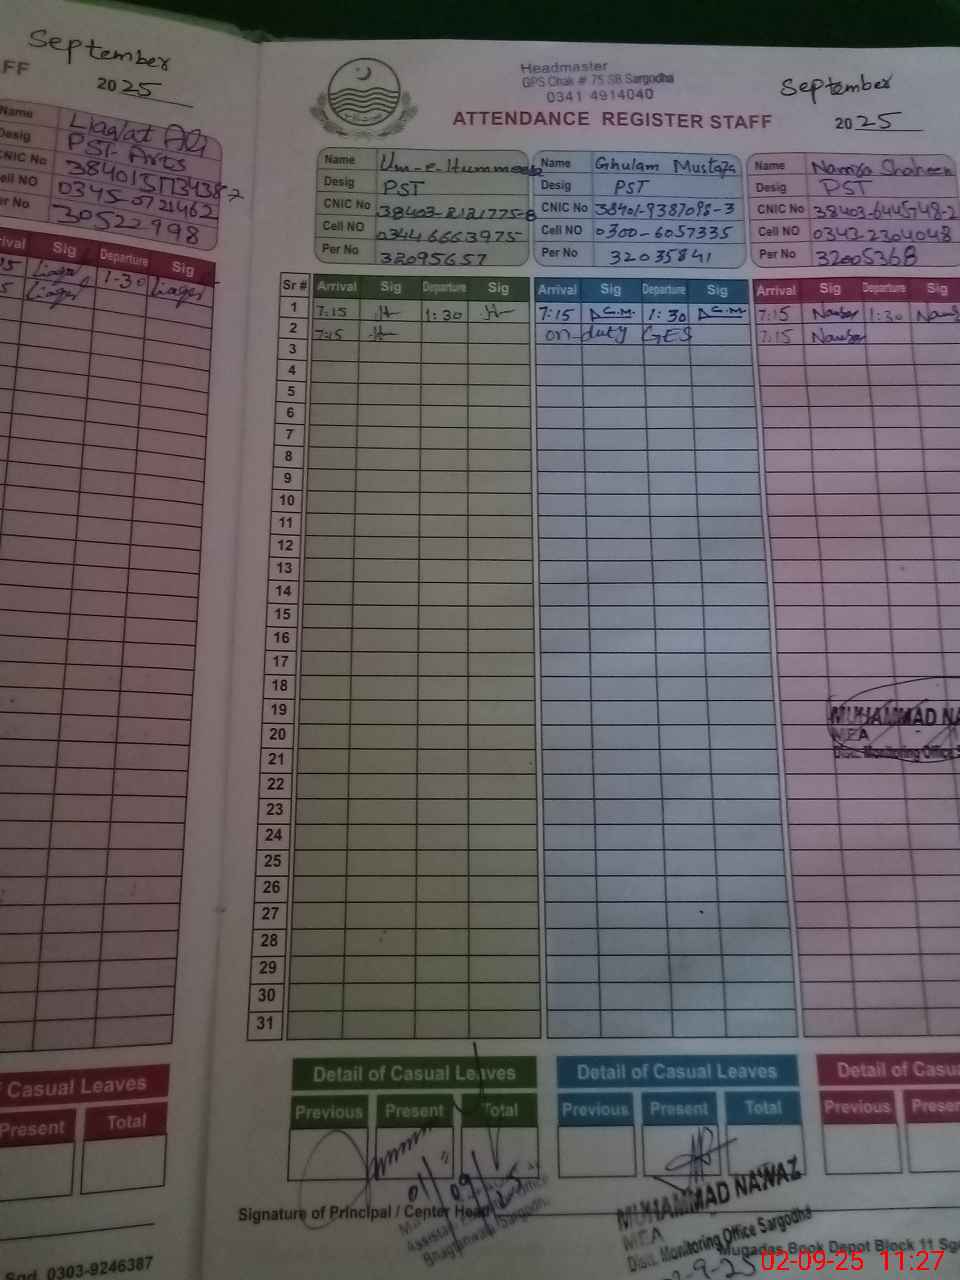 September
FF
2025
Name Liaqat Ali
Desig PST Arts
CNIC No
Cell NO 0345-0721462
Per No 30522998
Arrival Sig Departure Sig
1:30
Casual Leaves
Present Total
0303-9246387
Headmaster
GPS Chak # 75 SB Sargodha
0341 4914040
September
ATTENDANCE REGISTER STAFF
2025
Name Um-e-Hummeera
Desig PST
CNIC No 38403-2121775-8
Cell NO 03446663975
Per No 32095657
Name Ghulam Mustafa
Desig PST
CNIC No 38401-9387098-3
Cell NO 0300-6057335
Per No 32035841
Name Shaheen
Desig PST
CNIC No 38403-6445748-2
Cell NO 0343-2304048
Per No 32005368
Sr # Arrival Sig Departure Sig Arrival Sig Departure Sig Arrival Sig Departure Sig
1 7:15 1:30 7:15 1:30 7:15 1:30
2 7:15 on-duty GES 7:15
3
4
5
6
7
8
9
10
11
12
13
14
15
16
17
18
19
20
21
22
23
24
25
26
27
28
29
30
31
MUHAMMAD
MEA
Monitoring Office
Detail of Casual Leaves
Previous Present Total
Detail of Casual Leaves
Previous Present Total
Detail of
Previous
01/09/25
Signature of Principal / Center Head
MUHAMMAD NAWAZ
MEA
Distt. Monitoring Office Sargodha
Mugadas Book Depot Block 11
02-09-25 11:27